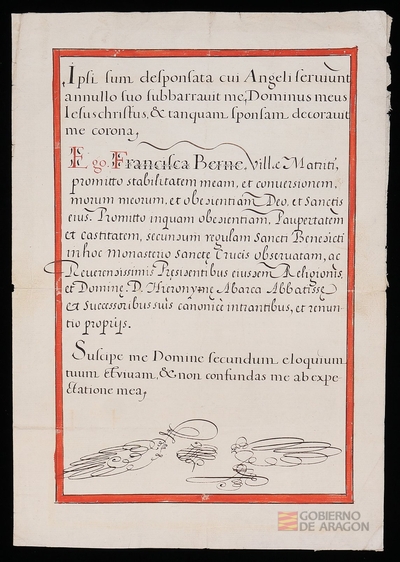 Ipsi sum desponsata cui Angeli serviunt
annullo suo subbarravit me, Dominus meus
Iesus christus, & tanquam sponsam decoravit
me corona,
Ego Francisca Berne, Villæ Matriti,
promitto stabilitatem meam, et conversionem
morum meorum, et obedientiam Deo, et Sanctis
eius. Promitto inquam obedientiam, Paupertatem
et castitatem, secundum regulam Sancti Benedicti
in hoc Monasterio Sanctę Crucis observatam, ac
Reverendissimis Presidentibus eiusdem Religionis,
et Dominę D. Hieronymę Abarca Abbatissę
et successoribus suis canonicè intrantibus, et renun-
tio propriis.
Suscipe me Domine secundum eloquium
tuum et vivam, & non confundas me ab expe
ctatione mea,
GOBIERNO
DE ARAGON